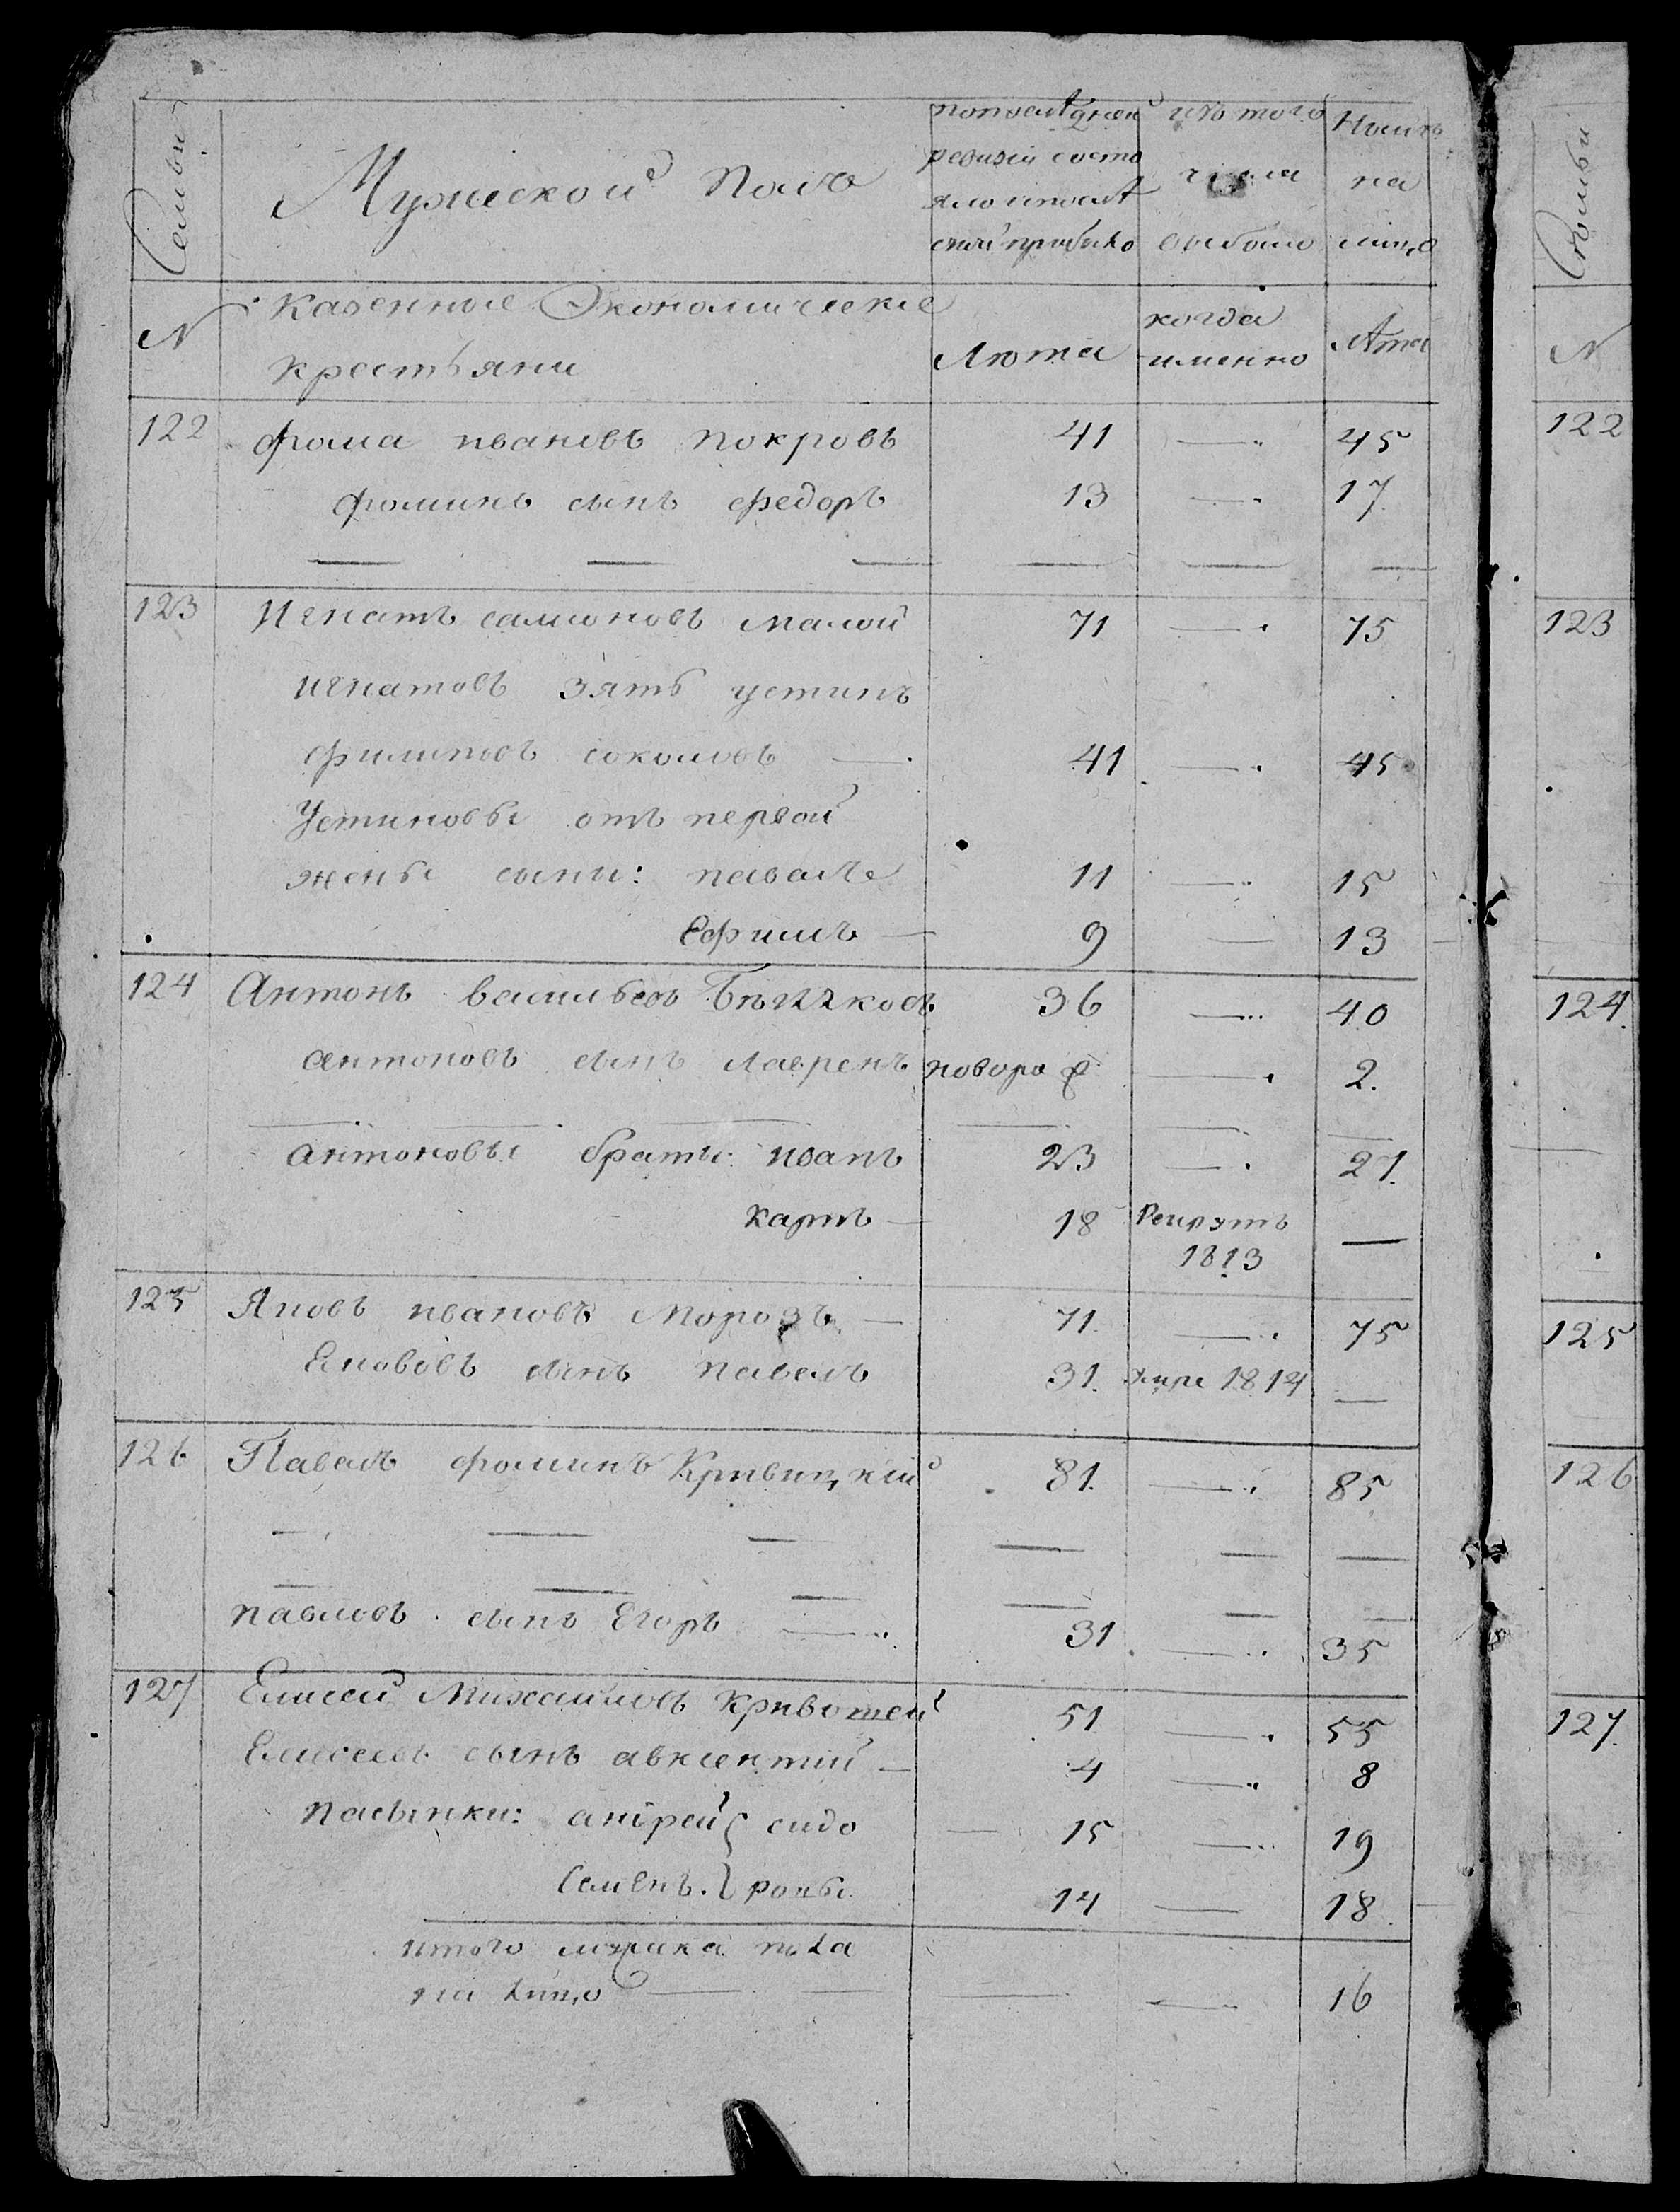 Семьи
Мужеской полъ
попоследней
ревизіи состо
яло ипосле
оной прибыло
изъ того
числа
выбыло
Ныне
на
лицо
N
Казенные Экономическіе
крестьяни
Лета
когда
именно
Лета
122 фома ивановъ покровъ 41 — 45
фоминъ сынъ федоръ 13 — 17
— — — — — —
123 Игнатъ самсоновъ малой 71 — 75
игнатовъ зять устинъ
филиповъ соколовъ — 41 — 45
Устиновы отъ первой
жены сыни: павелъ 11 — 15
Ефимъ — 9 — 13
124 Антонъ васильевъ 36 — 40
антоновъ сынъ лавренъ новоро — 2.
— — — — — —
антоновы браты иванъ 23 — 27.
карпъ — 18 Рекрутъ —
1813
125 Яковъ ивановъ Морозъ — 71. — 75
Якововъ сынъ павелъ 31. умре 1814 —
126 Павелъ фоминъ Кривицкій 81. — 85
— — — — — —
— — — — — —
павловъ сынъ Егоръ — 31 — 35
127 Елисей Михаиловъ Кривошей 51 — 55
Елисеевъ сынъ авксентій — 4 — 8
пасынки: андрей } сидо — 15 — 19
Семенъ. } ровы 14 — 18
итого мужеска пола
на лицо — — — — 16
Семьи
N
122
123
124.
125
126
127.